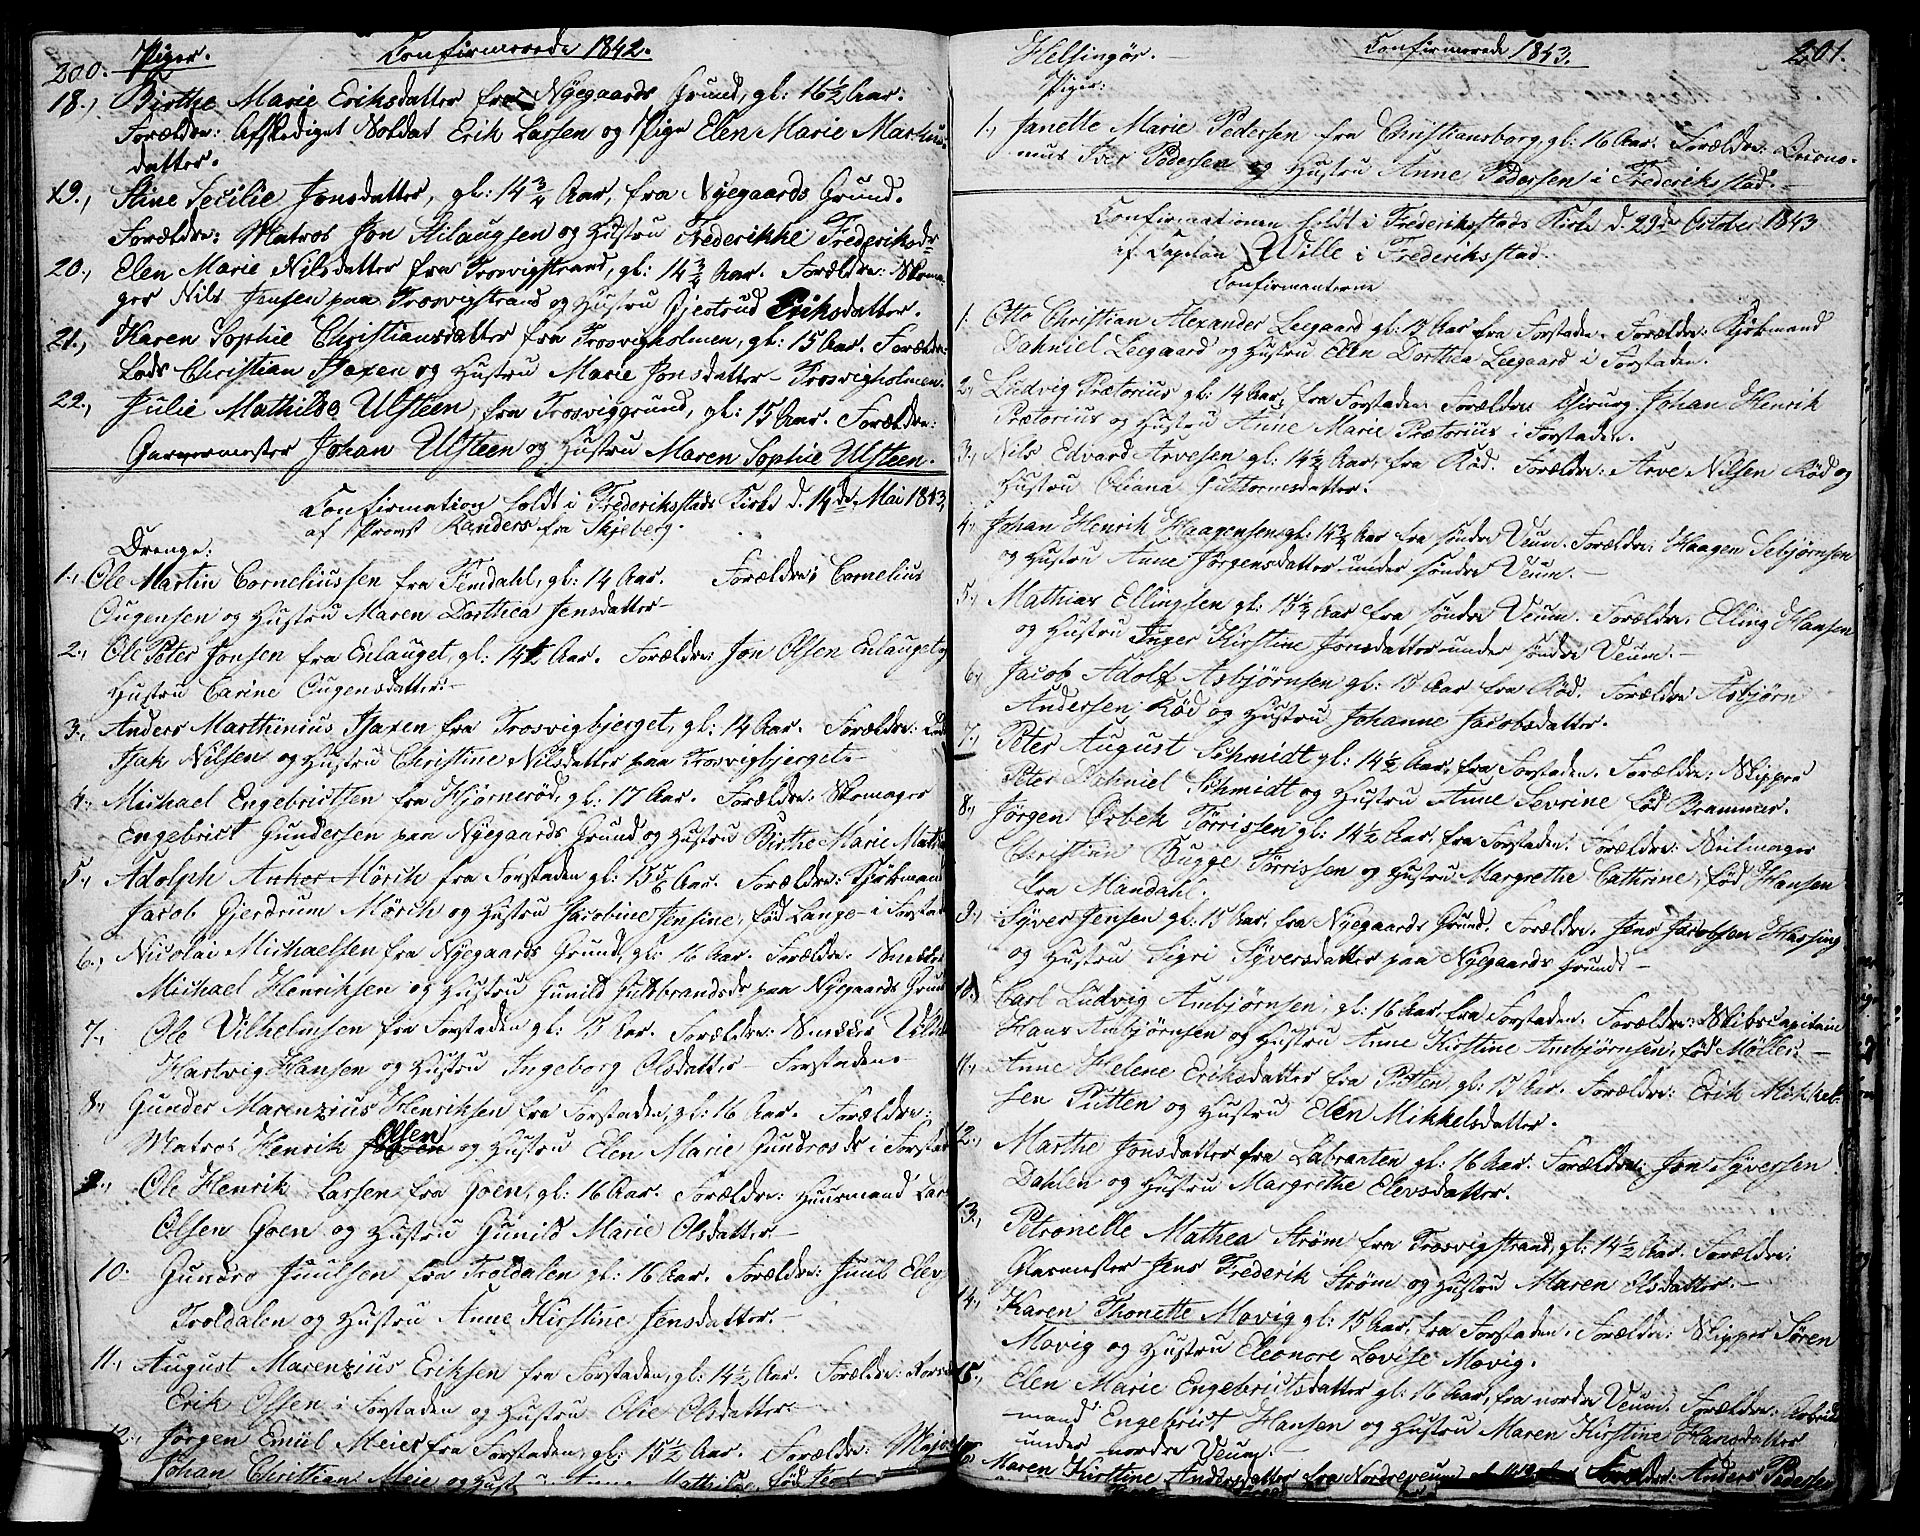 200. Piger. Confirmerede 1842.
18., Birthe Marie Eriksdatter fra Nyegaards Grund, gl: 16½ Aar.
Forældre: Afskediget Soldat Erik Larsen og Pige Elen Marie Mathis-
datter.
19., Stine Secilie Jonsdatter, gl: 14¾ Aar, fra Nyegaards Grund.
Forældre: Matros Jon Stilaugsen og Hustru Frederikke Frederiksdr
20., Elen Marie Nilsdatter fra Trosvigstrand, gl: 14¾ Aar. Forældre: Skoma-
ger Nils Jensen paa Trosvigstrand og Hustru Gjertrud Eriksdatter.
21., Karen Sophie Christiansdatter fra Trosvigholmen, gl: 15 Aar. Forældre:
Lods Christian Isaxen og Hustru Marie Jonsdatter - Trosvigholmen.
22., Julie Mathilde Ulsteen, fra Trosviggrund, gl: 15 Aar. Forældre:
Garvermester Johan Ulsteen og Hustru Maren Sophie Ulsteen.
Confirmation holdt i Frederiksstads Kirke d. 14de Mai 1843,
af Provst Randers fra Skjeberg.
Drenge:
1., Ole Martin Corneliussen fra Femdahl, gl: 14 Aar. Forældre: Cornelius
Ougensen og Hustru Maren Dorthea Jensdatter-
2., Ole Peter Jonsen fra Enlauget, gl: 14½ Aar. Forældre: Jon Olsen Enlauget og
Hustru Carine Ougensdatter:-
3., Anders Marthinius Isaxen fra Trosvigbjerget, gl: 14 Aar. Forældre: Lods
Isak Nilsen og Hustru Christine Nilsdatter paa Trosvigbjerget.-
4., Michael Engebrictsen fra Hjørnerød, gl: 17 Aar. Forældre: Skomager
Engebrict Gundersen paa Nyegaards Grund og Hustru Birthe Marie
5., Adolph Anker Mörch fra Forstaden gl: 15 5/6 Aar. Forældre: Kjøbmand
Jacob Gjerdrum Mörch og Hustru Jacobine Jensine, fød Lange - i Forstad
6., Nicolai Michaelsen fra Nyegaards Grund, gl: 16 Aar. Forældre:
Michael Henriksen og Hustru Gunild Guldbrandsdr paa Nyegaards Grund
7., Ole Vilhelmsen fra Forstaden gl: 15 Aar. Forældre: Snedker
Hartvig Hansen og Hustru Ingeborg Olsdatter - Forstaden
8., Gunder Marenzius Henriksen fra Forstaden, gl: 16 Aar. Forældre:
Matros Henrik Olsen og Hustru Elen Marie Gundrosdr i Forstad
9., Ole Henrik Larsen fra Goen, gl: 16 Aar. Forældre: Huusmand Lars
Olsen Goen og Hustru Gunild Marie Olsdatter.-
10. Gundro Juulsen fra Troldalen gl: 16 Aar. Forældre: Juul
Troldalen og Hustru Anne Kirstine Jensdatter.-
11., August Marenzius Eriksen fra Forstaden, gl: 14½ Aar. Forældre:
Erik Olsen i Forstaden og Hustru Olie Olsdatter.-
12., Jørgen Emül Meier fra Forstaden, gl: 15½ Aar. Forældre: Major
Johan Christian Meie og Hust Mathilde, fød
Confirmerede 1843. 201.
Helsingör.-
Piger:
1., Janette Marie Pedersen fra Christiansborg, gl: 16 Aar. Forældre:
Iver Pedersen og Hustru Anne Pedersen i Frederiksstad.-
Confirmationen holdt i Frederiksstads Kirke d. 29de October 1843
af Capelan Wille i Frederiksstad.
Confirmanterne
1. Otto Christian Alexander Leegaard gl: 15 Aar fra Forstaden. Forældre: Kjøbmand
Dahniel Leegaard og Hustru Elen Dorthea Leegaard i Forstaden.
2., Ludvig Prætorius gl: 14 Aar, fra Forstaden. Forældre: Chirurg Johan Henrik
Prætorius og Hustru Anne Marie Prætorius i Forstaden.
3., Nils Edvard Arvesen gl: 14½ Aar, fra Rød. Forældre: Arve Nilsen Rød og
Hustru Oliana Guttormsdatter.
4., Johan Henrik Haagensen gl: 15¾ Aar fra søndre Veum. Forældre: Haagen Sebjørnsen
og Hustru Anne Jørgensdatter under søndre Veum.-
5., Mathias Ellingsen gl: 15½ Aar fra søndre Veum. Forældre: Elling Hansen
og Hustru Inger Kirstine Jonsdatter under søndre Veum.-
6., Jacob Adolf Asbjørnsen gl: 15 Aar fra Rød. Forældre Asbjørn
Andersen Rød og Hustru Johanne Jacobsdatter.
7., Peter August Schmidt gl: 14½ Aar, fra Forstaden. Forældre: Skipper
Peter Dahniel Schmidt og Hustru Anne Sevrine fød Brammer.
8., Jørgen Orbek Tørrissen gl: 14½ Aar, fra Forstaden. Forældre: Seilmager
Christian Bugge Tørrissen og Hustru Margrethe Cathrine, fød Hansen
fra Mandahl.
9., Syver Jensen gl: 15 Aar, fra Nyegaards Grund. Forældre. Jens Jacobsen Hassing
og Hustru Sigri Syversdatter paa Nyegaards Grund -
10., Carl Ludvig Ambjørnsen, gl: 16 Aar, fra Forstaden. Forældre: Skibscapitain
Hans Ambjørnsen og Hustru Anne Kirstine Ambjørnsen, fød Møller.-
11., Anne Helene Eriksdatter fra Putten, gl: 15 Aar. Forældre: Erik Mikkel-
sen Putten og Hustru Elen Mikkelsdatter.
12., Marthe Jonsdatter fra Labraaten gl: 16 Aar. Forældre: Jon Syversen
Dahlen og Hustru Margrethe Elevsdatter.
13., Petronelle Mathea Strøm fra Trosvigstrand, gl: 14½ Aar. Forældre:
Glarmester Jens Frederik Strøm og Hustru Maren Olsdatter.-
14., Karen Thonette Movig gl: 15 Aar, fra Forstaden. Forældre: Skipper Søren
Movig og Hustru Eleonore Lovise Movig.
15., Elen Marie Engebrictsdatter gl: 16 Aar, fra nordre Veum. Forældre: Arbeids-
mand Engebrict Hansen og Hustru Maren Kirstine Hansdatter
under nordre Veum.-
16. Maren Kirstine Andersdatter fra Nordreveum Forældre: Anders Pedersen